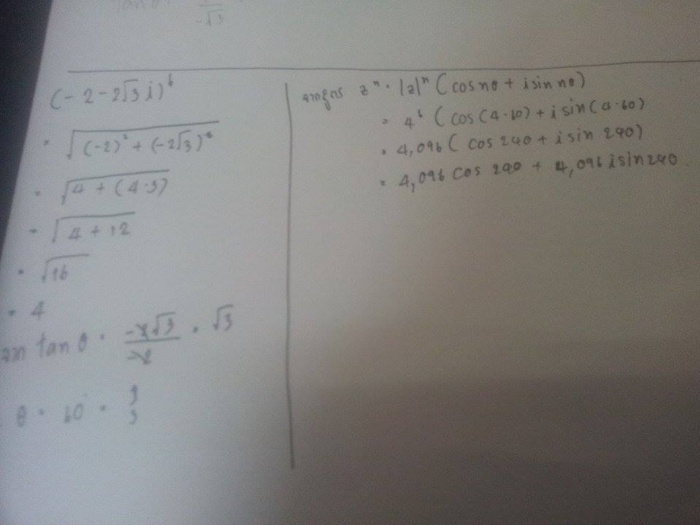 (-2-2√3 i)⁶
= √((-2)² + (-2√3)²)
= √(4 + (4·3))
= √(4 + 12)
= √16
= 4
จาก tan θ = -2√3 / -2 = √3
θ = 60 =
จากสูตร zⁿ = |z|ⁿ (cos nθ + i sin nθ)
= 4⁶ (cos(4·60) + i sin(4·60)
= 4,096 (cos 240 + i sin 240)
= 4,096 cos 240 + 4,096 i sin 240